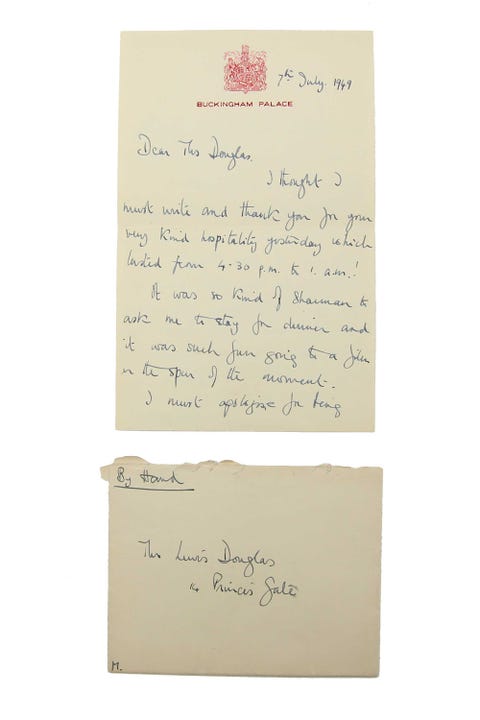 7th July. 1949
BUCKINGHAM PALACE
Dear Mrs Douglas.
I thought I
must write and thank you for your
very kind hospitality yesterday which
lasted from 4.30 p.m. to 1. a.m.!
It was so kind of Sharman to
ask me to stay for dinner and
it was such fun going to a film
on the spur of the moment.
I must apologise for being
By Hand
Mrs Lewis Douglas
14 Princes Gate
M.